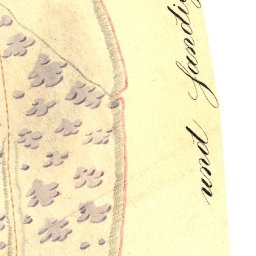 und sandig